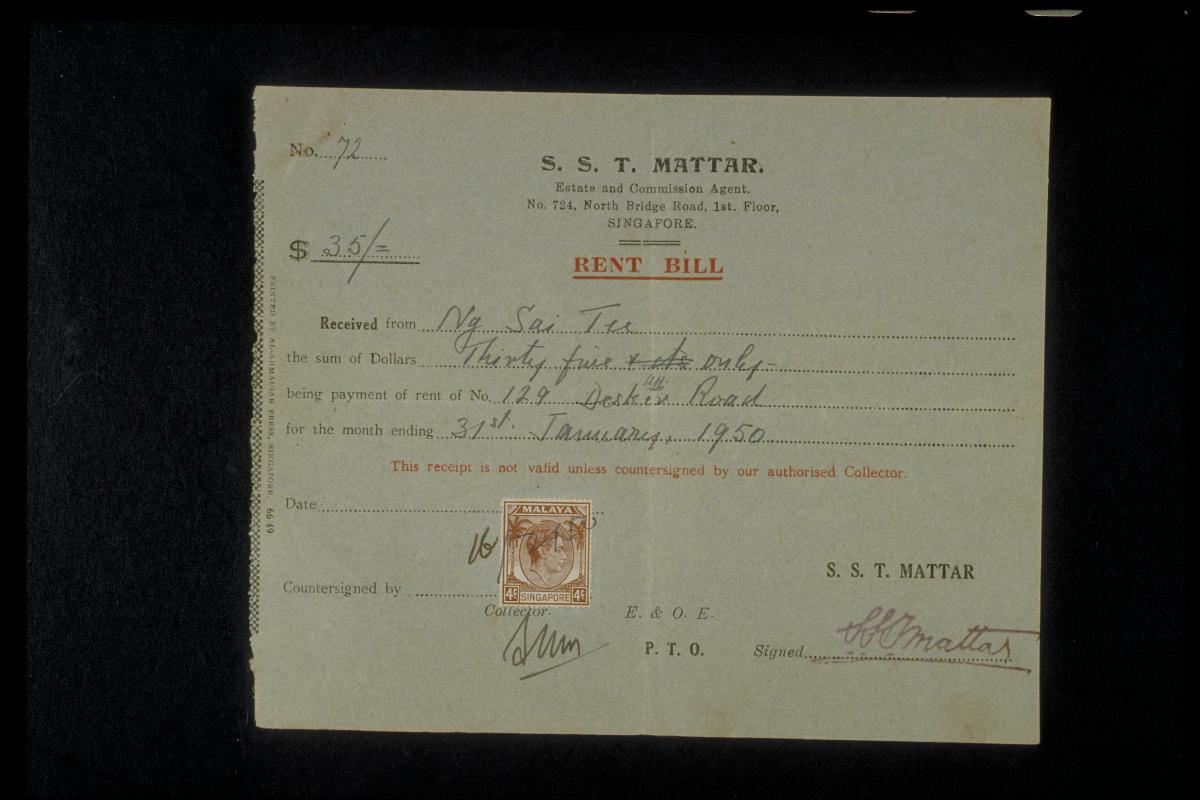 No. 72
S. S. T. MATTAR.
Estate and Commission Agent.
No. 724, North Bridge Road, 1st. Floor,
SINGAPORE.
$ 35/=
RENT BILL
Received from Ng Sai Tee
the sum of Dollars Thirty five & cts only-
being payment of rent of No. 129 Desker Road
for the month ending 31st. January, 1950
This receipt is not valid unless countersigned by our authorised Collector.
Date
MALAYA
16/2/50
4c SINGAPORE 4c
S. S. T. MATTAR
Countersigned by
Collector.
E. & O. E.
P. T. O.
Signed SSTmattar
PRINTED BY AL-AHMADIAH PRESS, SINGAPORE. 66 49